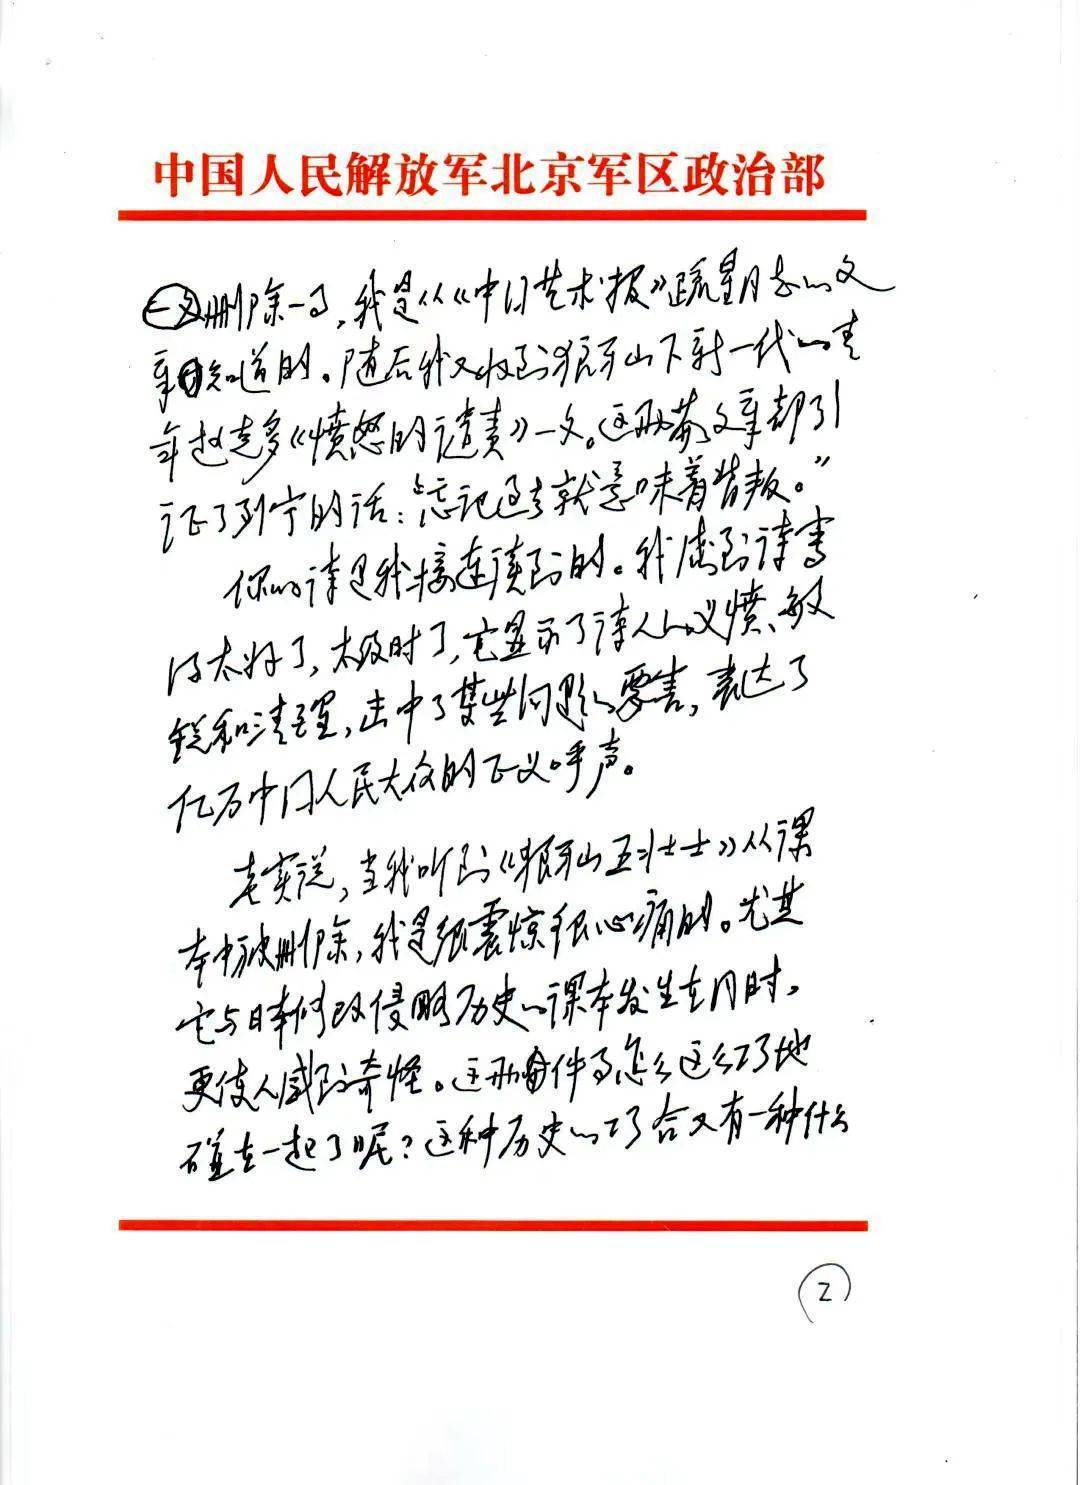 中国人民解放军北京军区政治部
一文删除一事，我是从《中国艺术报》疏星同志的文
章中知道的。随后我又收到狼牙山下新一代的青
年赵志多《愤怒的谴责》一文。这两篇文章都引
证了列宁的话：“忘记过去就意味着背叛。”
你的诗是我接连读到的。我感到诗写
得太好了，太及时了，它显示了诗人的义愤、敏
锐和清醒，击中了某些问题的要害，表达了
亿万中国人民大众的正义呼声。
老实说，当我听到《狼牙山五壮士》从课
本中被删除，我是很震惊很心痛的。尤其
它与日本修改侵略历史的课本发生在同时，
更使人感到奇怪。这两件事怎么这么巧地
碰在一起了呢？这种历史的巧合又有一种什么
2